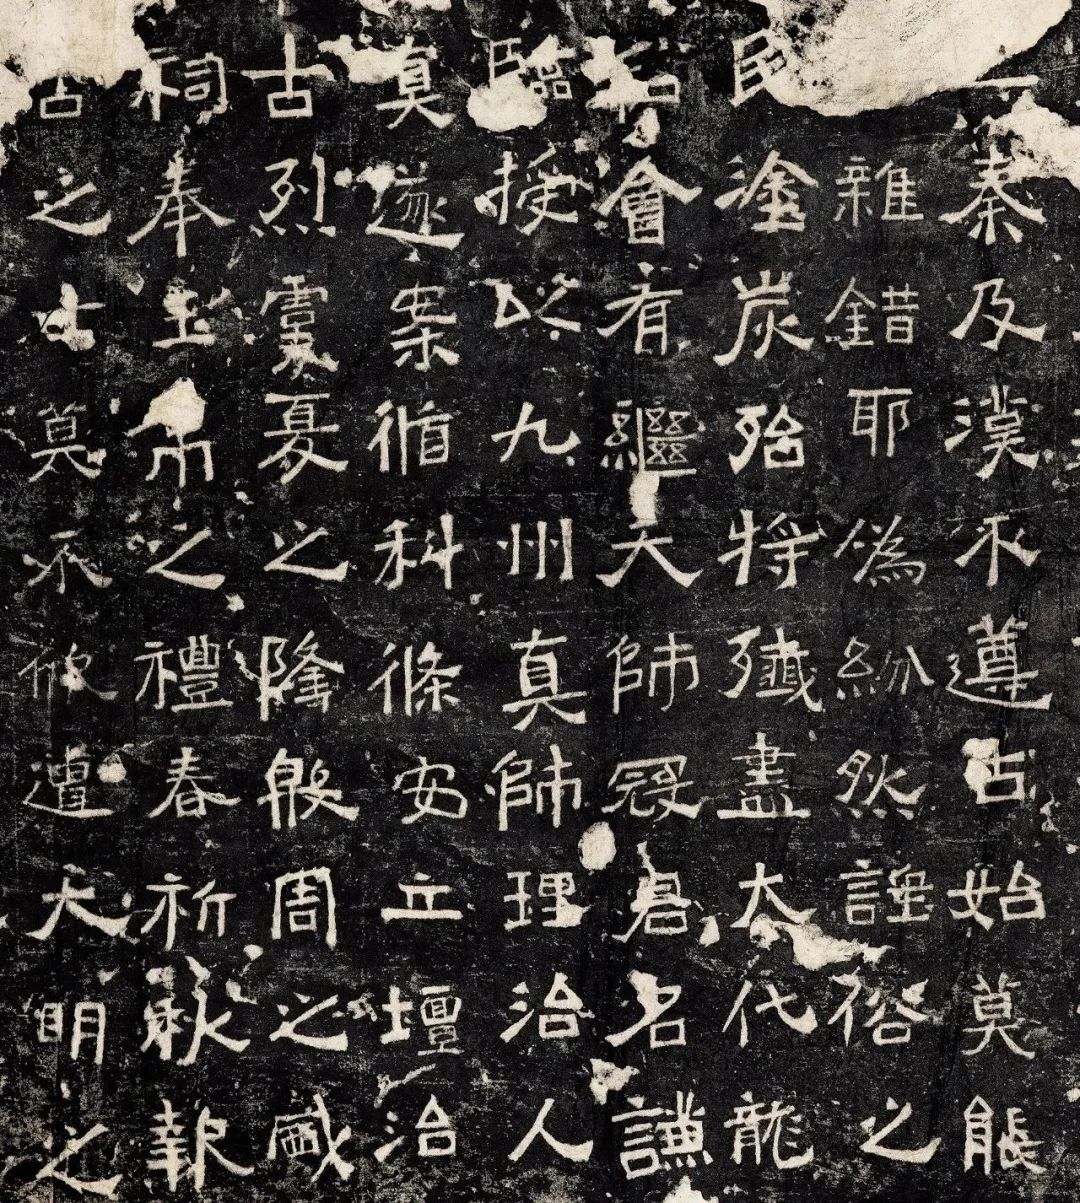 秦及漢不遵古始莫能
雜錯耶偽紛然誣俗之
民塗炭殆將殲盡大代龍
和會有繼天師寇君名謙
臨授以九州真師理治人
真遂案循科條安立壇治
古烈虞夏之隆殷周之盛
祠奉玉帛之禮春祈秋報
古之士莫不欣遭天明之